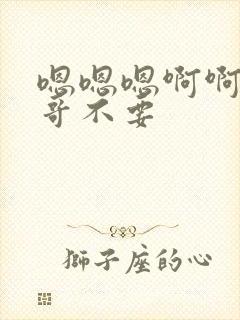 嗯嗯嗯啊啊
哥不要
獅子座的心